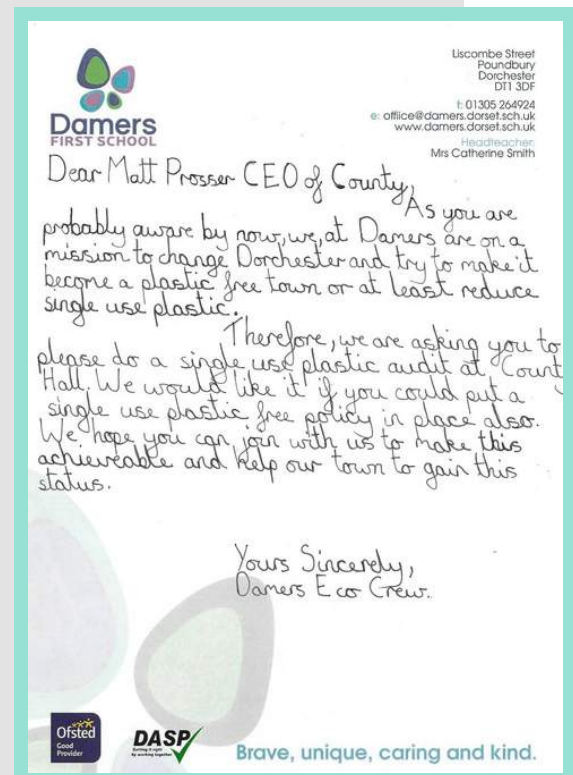 Damers
FIRST SCHOOL
Liscombe Street
Poundbury
Dorchester
DT1 3DF
t: 01305 264924
e: office@damers.dorset.sch.uk
www.damers.dorset.sch.uk
Headteacher:
Mrs Catherine Smith
Dear Matt Prosser CEO of County,
As you are
probably aware by now, we, at Damers are on a
mission to change Dorchester and try to make it
become a plastic free town or at least reduce
single use plastic.
Therefore, we are asking you to
please do a single use plastic audit at Count
Hall. We would like it if you could put a
single use plastic free policy in place also.
We hope you can join with us to make this
achieveable and help our town to gain this
status.
Yours Sincerely,
Damers Eco Crew.
Ofsted
Good
Provider
DASP
Getting it right
by working together
Brave, unique, caring and kind.